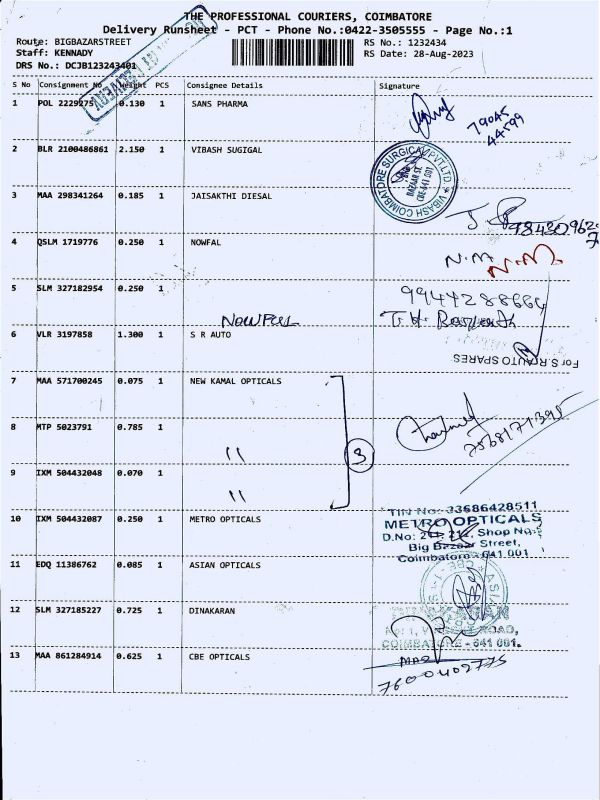 THE PROFESSIONAL COURIERS, COIMBATORE
Delivery Runsheet - PCT - Phone No.:0422-3505555 - Page No.:1
Route: BIGBAZARSTREET RS No.: 1232434
Staff: KENNADY RS Date: 28-Aug-2023
DRS No.: DCJB123243401
S No Consignment No Weight PCS Consignee Details Signature
1 POL 2229275 0.130 1 SANS PHARMA
79045
44599
2 BLR 2100486861 2.150 1 VIBASH SUGIGAL
VIBASH COIMBATORE SURGICAL PVT.LTD.
BAZAAR ST.
CBE-641 001
3 MAA 298341264 0.185 1 JAISAKTHI DIESAL
4 QSLM 1719776 0.250 1 NOWFAL
N.M N.M
5 SLM 327182954 0.250 1
9944288664
NOWFUL
6 VLR 3197858 1.300 1 S R AUTO
For S.R. AUTO SPARES
7 MAA 571700245 0.075 1 NEW KAMAL OPTICALS
8 MTP 5023791 0.785 1
7568171395
"
3
9 IXM 504432048 0.070 1
"
TIN No: 33686428511
10 IXM 504432087 0.250 1 METRO OPTICALS METRO OPTICALS
Shop No:
Big Bazaar Street,
Coimbatore - 641 001
11 EDQ 11386762 0.085 1 ASIAN OPTICALS
12 SLM 327185227 0.725 1 DINAKARAN
ROAD,
COIMBATORE - 641 001.
13 MAA 861284914 0.625 1 CBE OPTICALS
7600402775